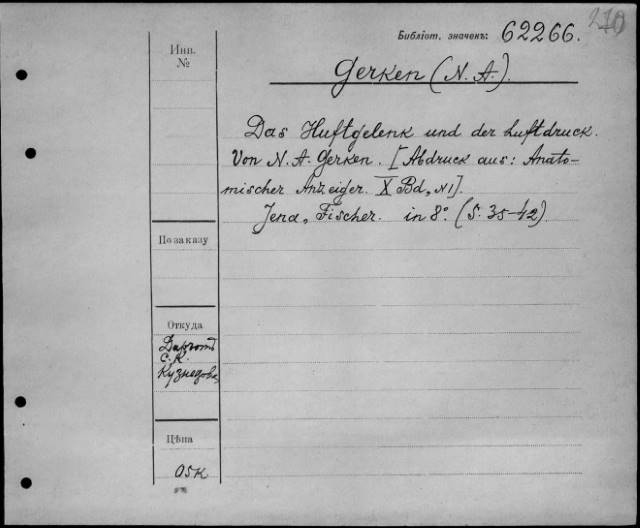 210
Библіот. значекъ: 62266.
Инв.
№
Gerken (N. A.).
Das Huftgelenk und der Luftdruck.
Von N. A. Gerken. [Abdruck aus: Anato-
mischer Anzeiger. X Bd, N1].
Jena, Fischer. in 8°. (S. 35-42)
По заказу
Откуда
Даръ отъ
С. К.
Кузнецова
Цѣна
05к